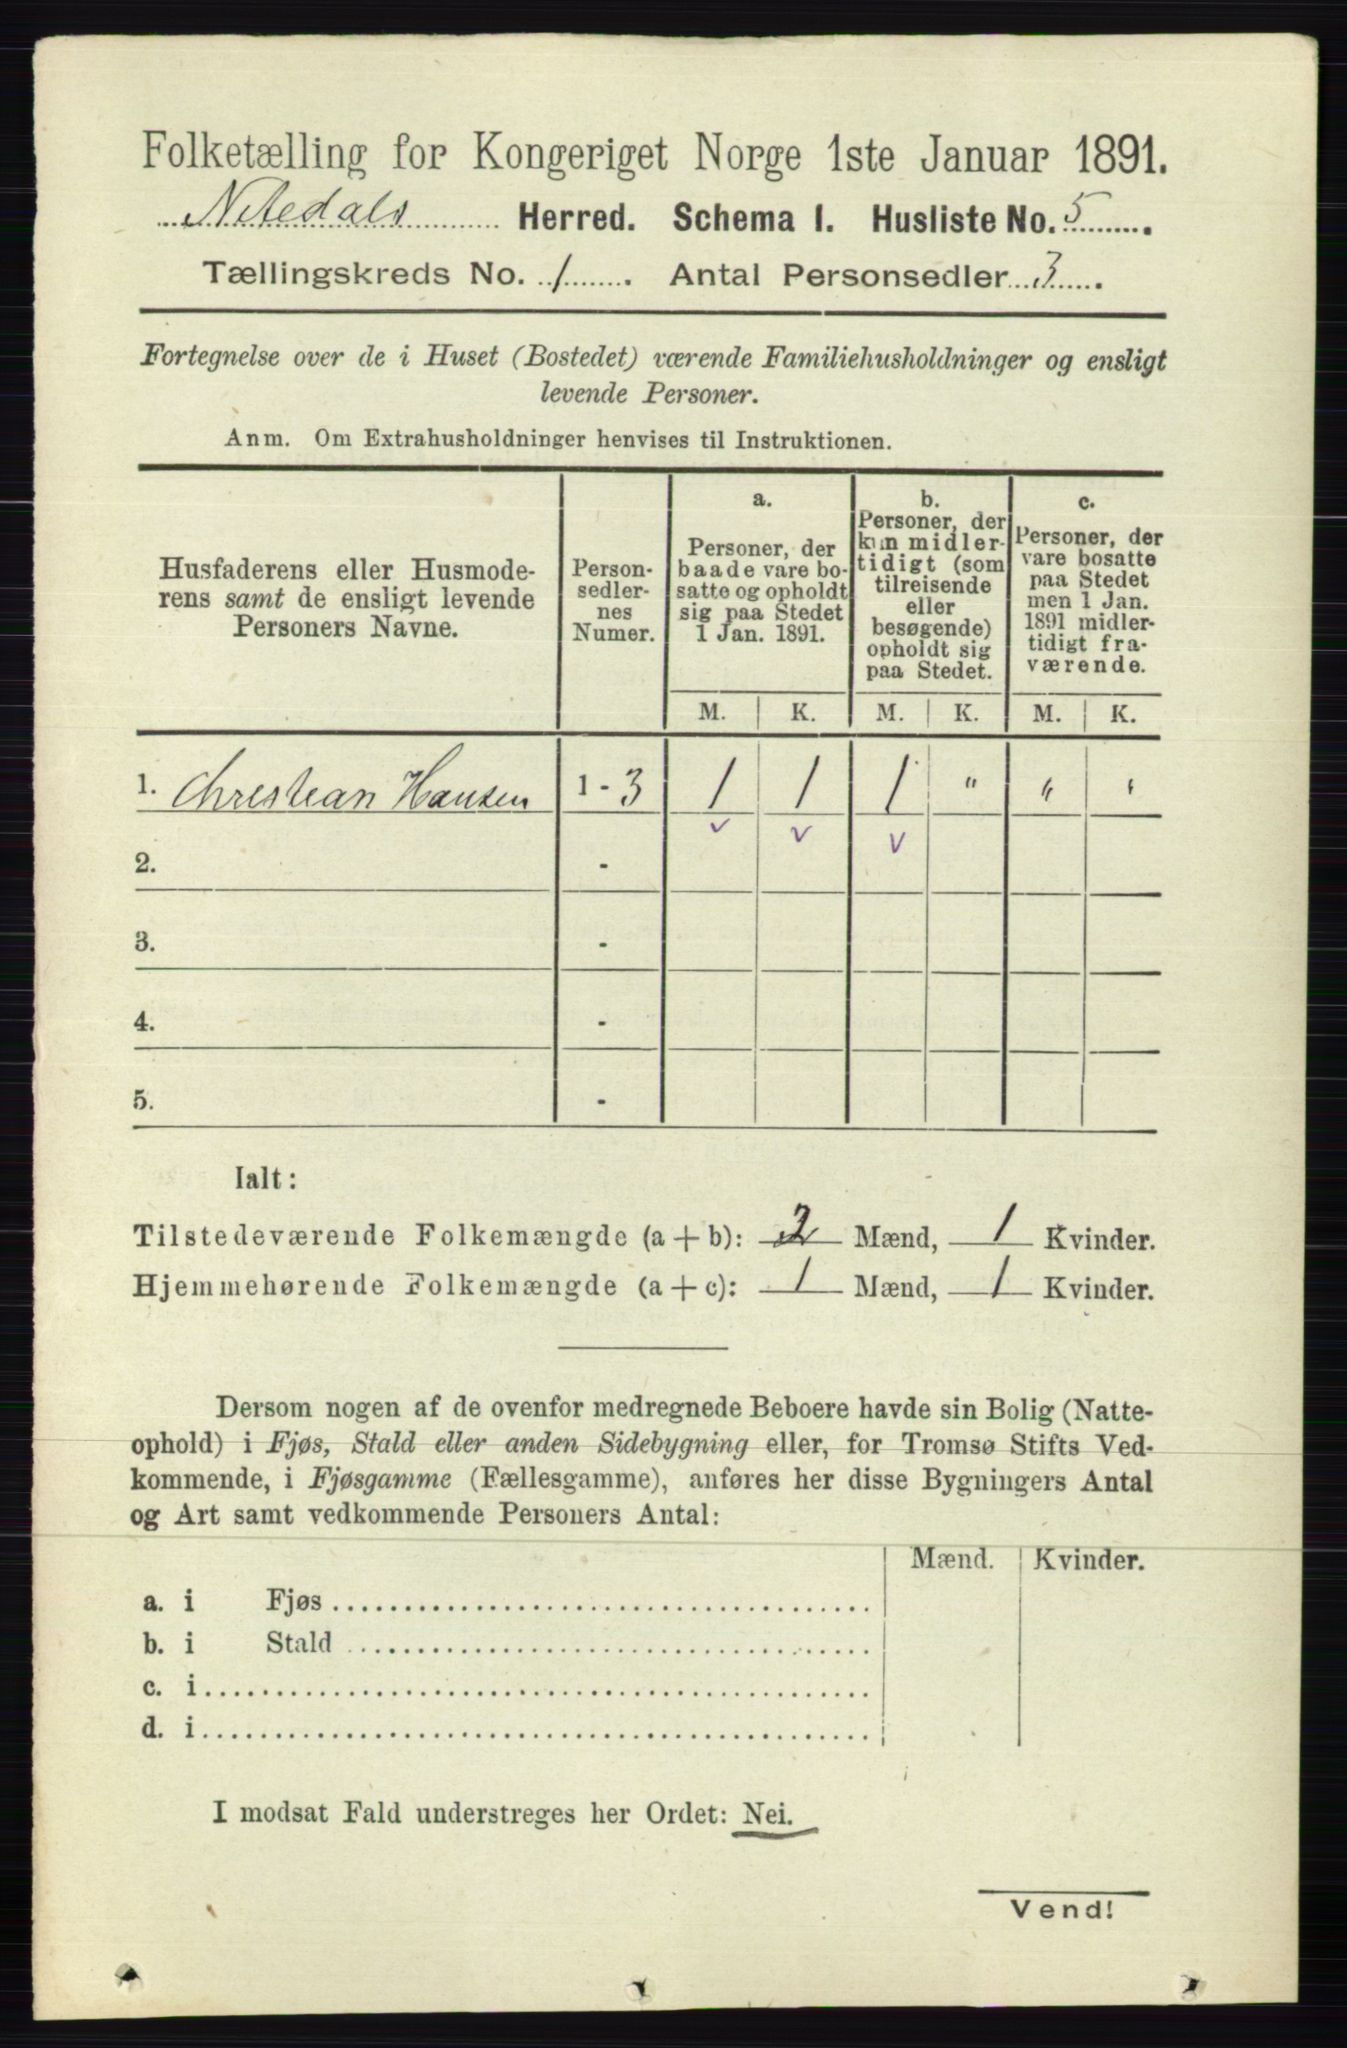 Folketælling for Kongeriget Norge 1ste Januar 1891.
Nitedals Herred. Schema I. Husliste No. 5
Tællingskreds No. 1. Antal Personsedler 3.
Fortegnelse over de i Huset (Bostedet) værende Familiehusholdninger og ensligt
levende Personer.
Anm. Om Extrahusholdninger henvises til Instruktionen.
Husfaderens eller Husmode-
rens samt de ensligt levende
Personers Navne.
Person-
sedler-
nes
Numer.
a.
Personer, der
baade vare bo-
satte og opholdt
sig paa Stedet
1 Jan. 1891.
b.
Personer, der
kun midler-
tidigt (som
tilreisende
eller
besøgende)
opholdt sig
paa Stedet.
c.
Personer, der
vare bosatte
paa Stedet
men 1 Jan.
1891 midler-
tidigt fra-
værende.
M. K. M. K. M. K.
1. Christian Hansen 1 - 3 1 1 1 " " "
v v v
2. -
3. -
4. -
5. -
Ialt:
Tilstedeværende Folkemængde (a + b): 2 Mænd, 1 Kvinder.
Hjemmehørende Folkemængde (a + c): 1 Mænd, 1 Kvinder.
Dersom nogen af de ovenfor medregnede Beboere havde sin Bolig (Natte-
ophold) i Fjøs, Stald eller anden Sidebygning eller, for Tromsø Stifts Ved-
kommende, i Fjøsgamme (Fællesgamme), anføres her disse Bygningers Antal
og Art samt vedkommende Personers Antal:
Mænd. Kvinder.
a. i Fjøs
b. i Stald
c. i
d. i
I modsat Fald understreges her Ordet: Nei.
Vend!